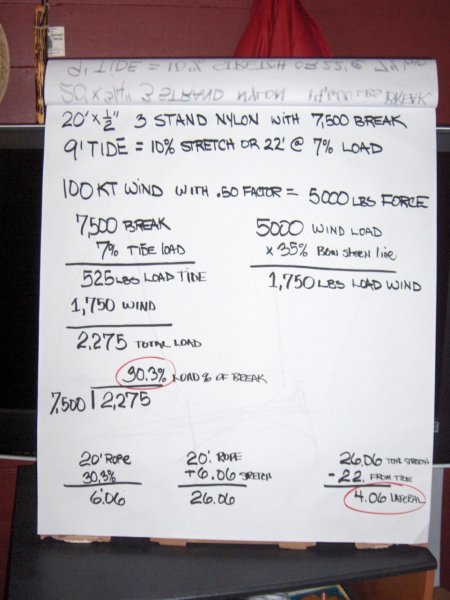 20' x 1/2" 3 STAND NYLON WITH 7,500 BREAK
9' TIDE = 10% STRETCH OR 22' @ 7% LOAD
100 KT WIND WITH .50 FACTOR = 5000 LBS FORCE
7,500 BREAK
7% TIDE LOAD
525 LBS LOAD TIDE
1,750 WIND
2,275 TOTAL LOAD
30.3% LOAD % OF BREAK
7,500 | 2,275
5000 WIND LOAD
x 35% BOW STERN line
1,750 LBS LOAD WIND
20' ROPE
30.3%
6'.06
20'. ROPE
+6.06 STRETCH
26.06
26.06 TOTAL STRETCH
- 22. FROM TIDE
4.06 LATERAL